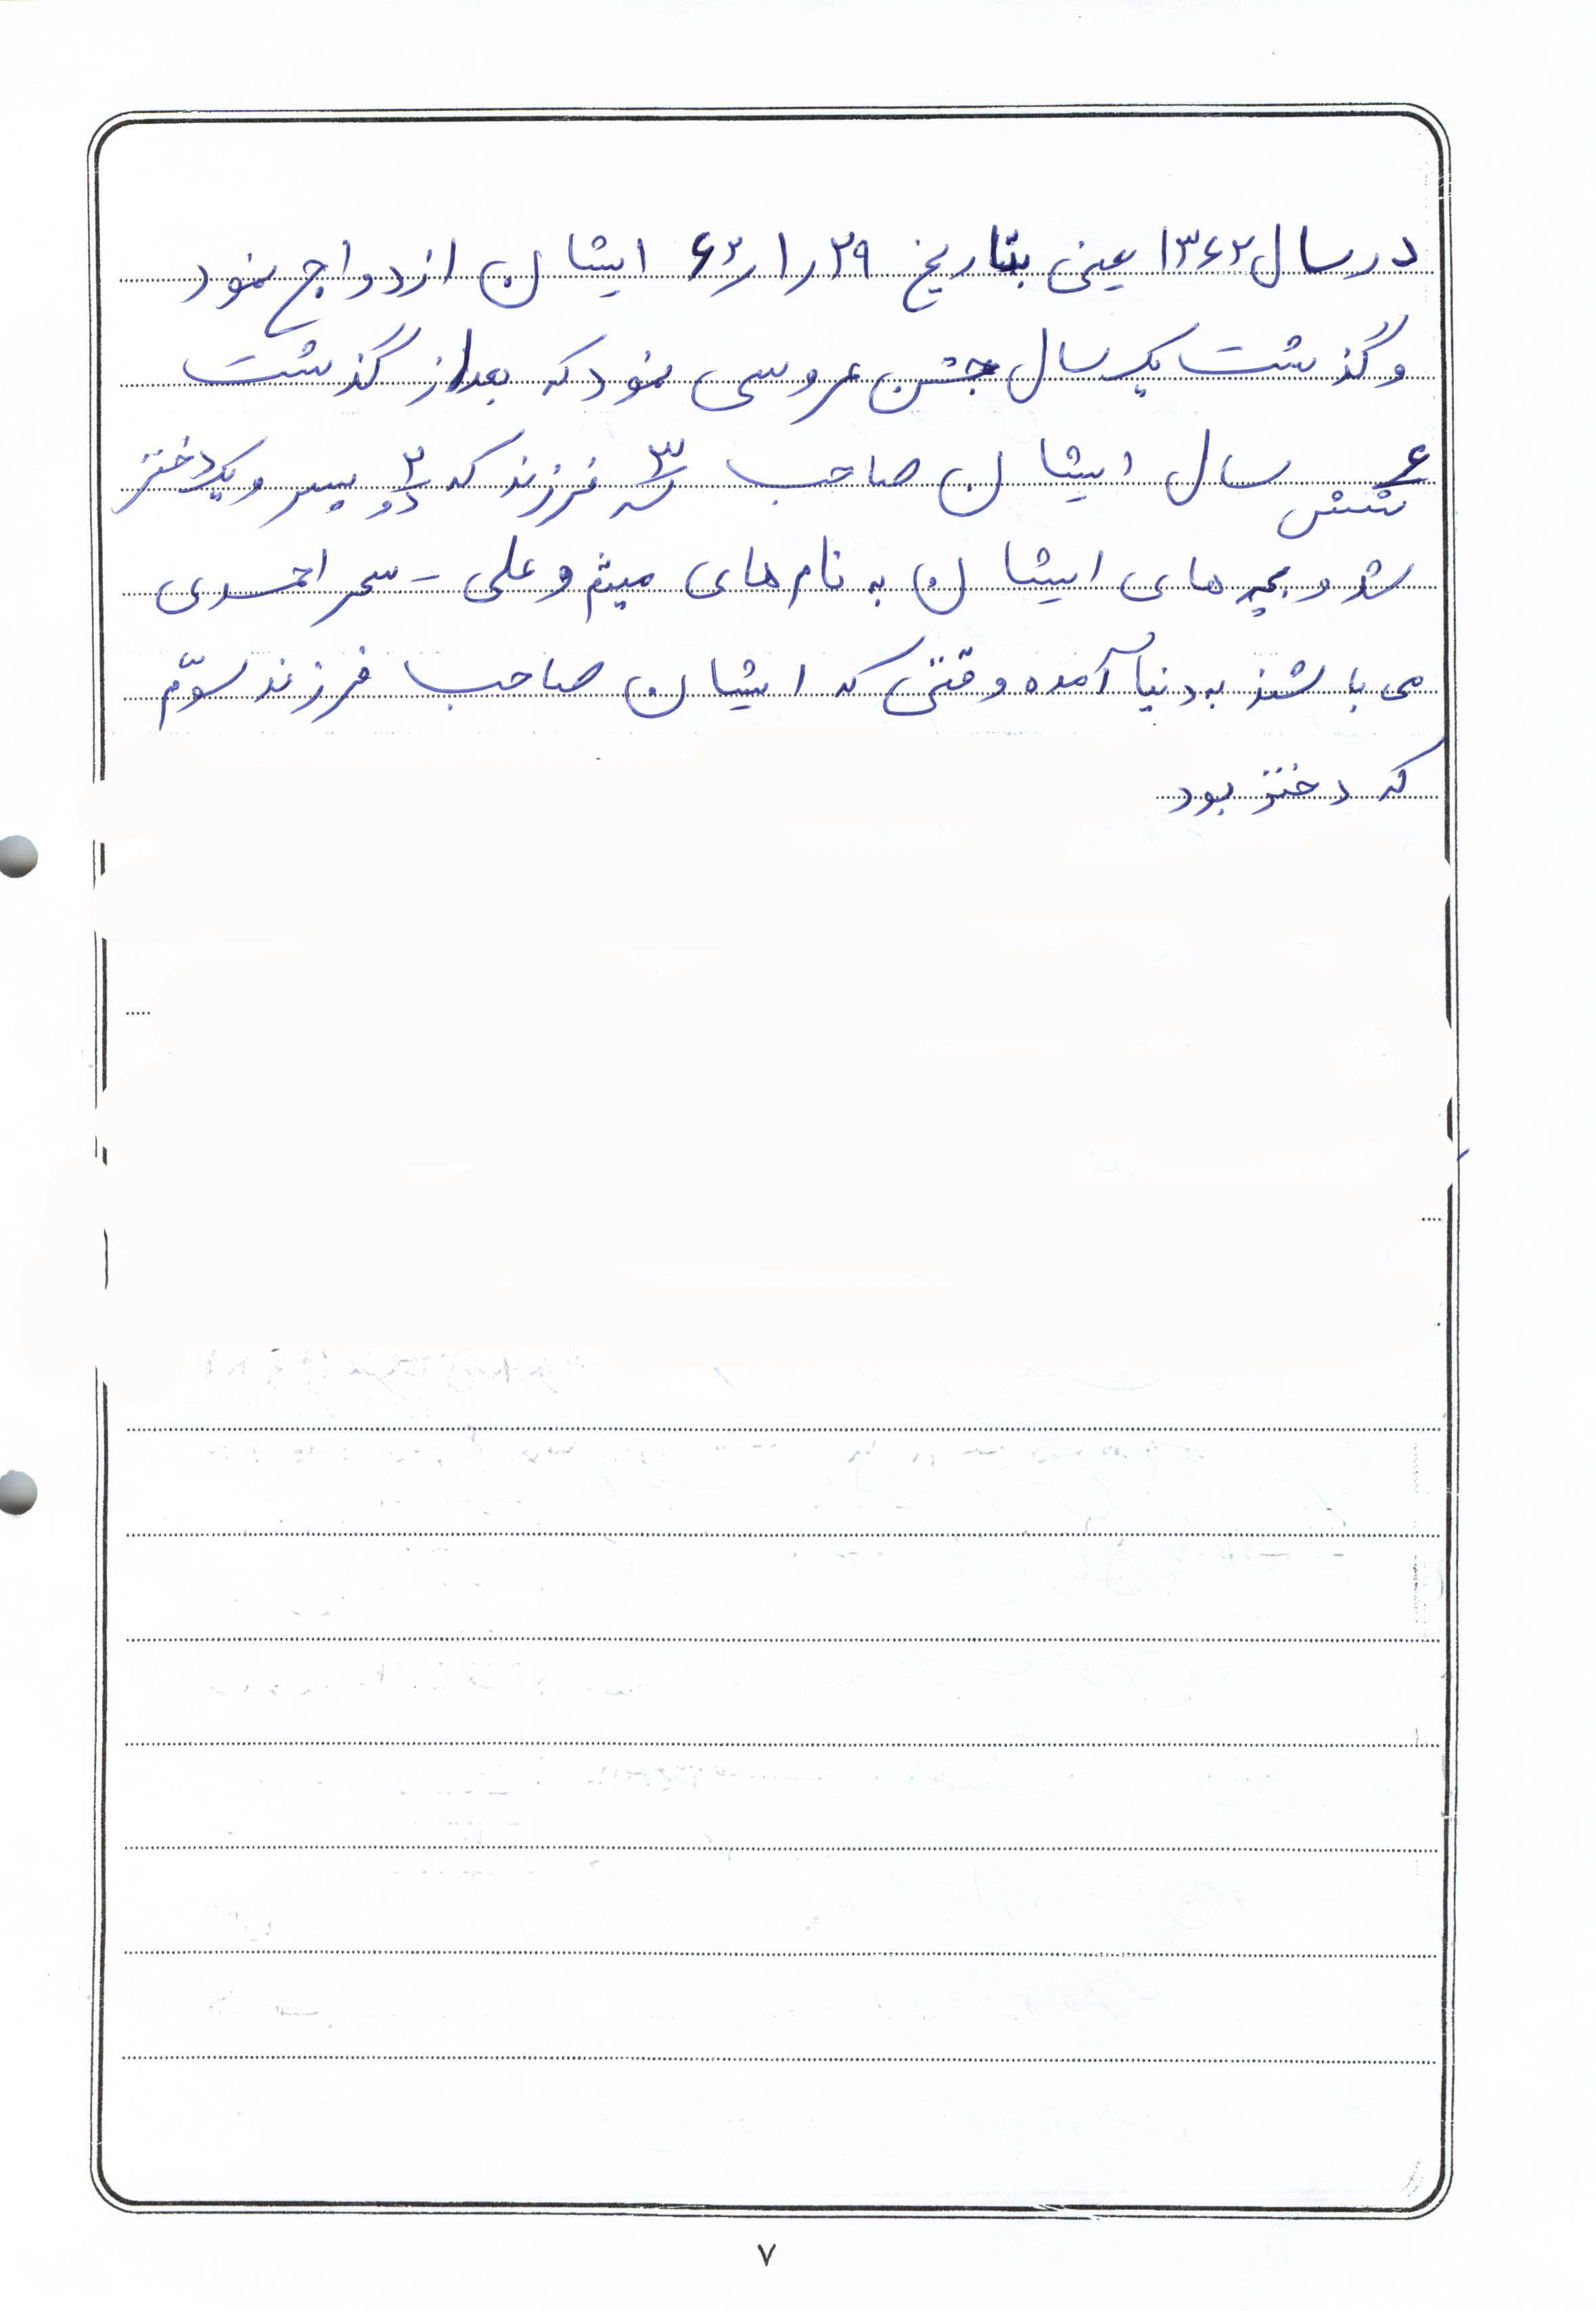 در سال ۱۳۶۲ یعنی بتاریخ ۲۹ر۱ر۶۲ ایشان ازدواج نمود
و گذشت یک سال جشن عروسی نمود که بعد از گذشت
۶ شش سال ایشان صاحب ۳ سه فرزند که ۲ دو پسر و یک دختر
شد و بچه های ایشان به نام های میثم و علی - سحر احمدی
می باشند به دنیا آمده وقتی که ایشان صاحب فرزند سوّم
که دختر بود
۷